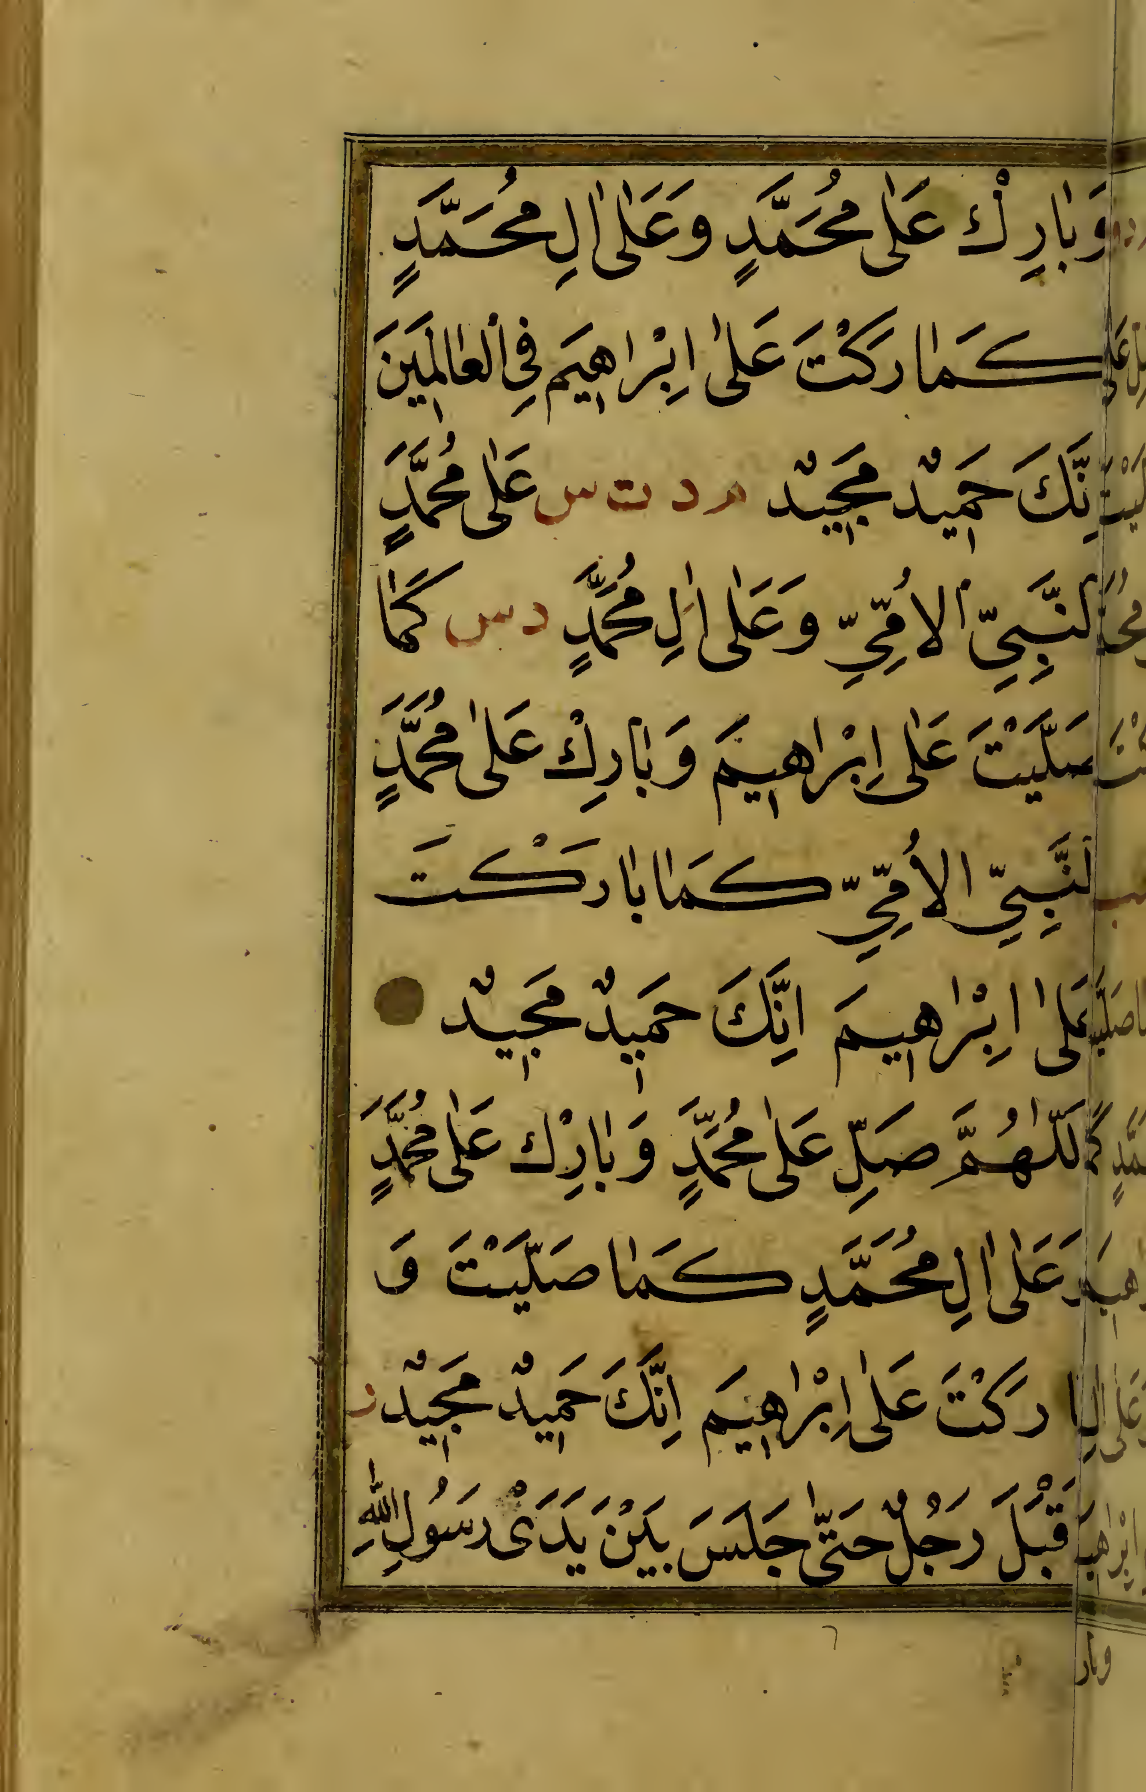 وَبَارِكْ عَلٰى مُحَمَّدٍ وَعَلٰى اٰلِ مُحَمَّدٍ
كَمَا رَكْتَ عَلٰى اِبْرَاهِيَم فِي الْعَالَمِينَ
نَّكَ حَمِيدٌ مَجِيدٌ م د ت س عَلٰى مُحَمَّدٍ
النَّبِيِّ الأُمِّيِّ وَعَلٰى اٰلِ مُحَمَّدٍ د س كَمَا
صَلَّيْتَ عَلٰى اِبْرَاهِيمَ وَبَارِكْ عَلٰى مُحَمَّدٍ
النَّبِيِّ الأُمِّيِّ كَمَا بَارَكْتَ
عَلٰى اِبْرَاهِيمَ اِنَّكَ حَمِيدٌ مَجِيدٌ
للّٰهُمَّ صَلِّ عَلٰى مُحَمَّدٍ وَبَارِكْ عَلٰى مُحَمَّدٍ
وَعَلٰى اٰلِ مُحَمَّدٍ كَمَا صَلَّيْتَ وَ
رَكْتَ عَلٰى اِبْرَاهِيَم اِنَّكَ حَمِيدٌ مَجِيدٌ ر
قْبَلَ رَجُلٌ حَتّٰى جَلَسَ بَيْنَ يَدَىْ رَسُولِ اللّٰهِ
وبار